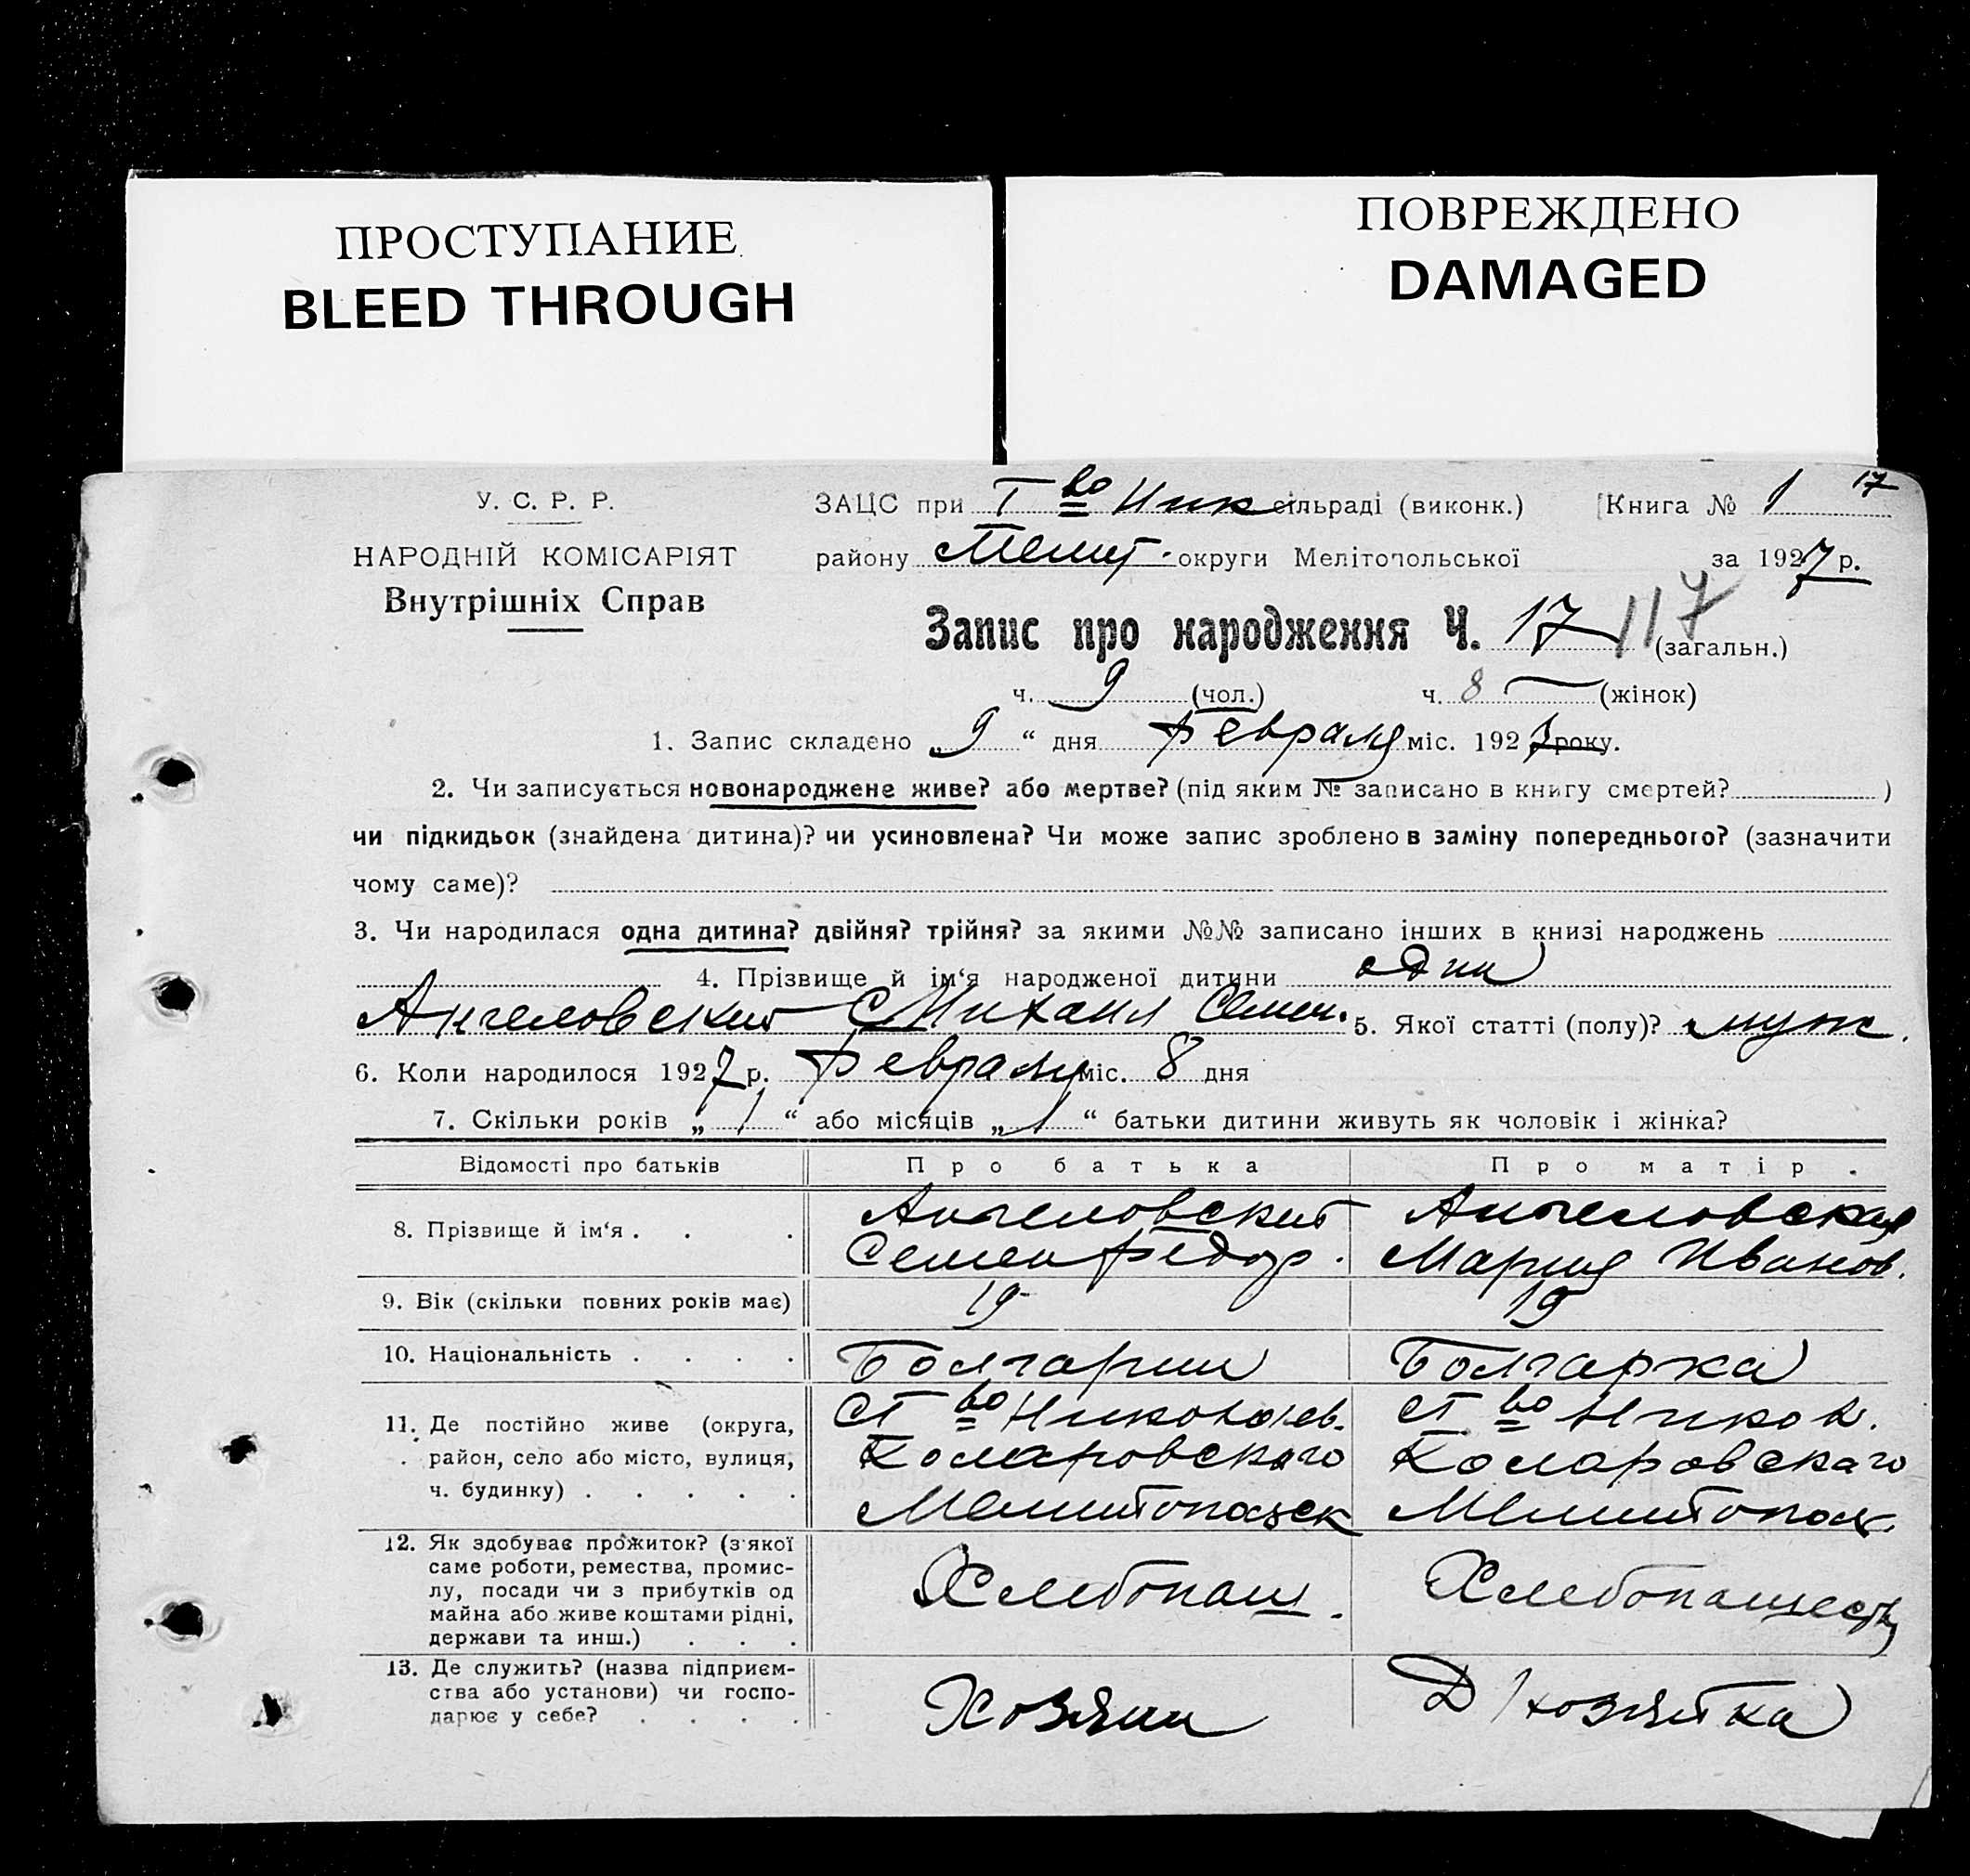 ПРОСТУПАНИЕ
BLEED THROUGH
ПОВРЕЖДЕНО
DAMAGED
У. С. Р. Р.
НАРОДНІЙ КОМІСАРІЯТ
Внутрішніх Справ
ЗАЦС при Т во Ник сільраді (виконк.) Книга № 1 17
району Мелит. округи Мелітопольської за 1927 р.
Запис про народження Ч. 17 117 (загальн.)
ч. 9 (чол.) ч. 8 — (жінок)
1. Запис складено „ 9 “ дня Февраля міс. 1927 року.
2. Чи записується новонароджене живе? або мертве? (під яким № записано в книгу смертей? )
чи підкидьок (знайдена дитина)? чи усиновлена? Чи може запис зроблено в заміну попереднього? (зазначити
чому саме)?
3. Чи народилася одна дитина? двійня? трійня? за якими №№ записано інших в книзі народжень
один
4. Прізвище й ім‘я народженої дитини
Ангеловский Михаил Семен. 5. Якої статті (полу)? муж.
6. Коли народилося 1927 р. Февраля міс. 8 дня
7. Скільки років „ 1 “ або місяців „ 1 “ батьки дитини живуть як чоловік і жінка?
Відомості про батьків Про батька Про матір.
8. Прізвище й ім‘я . . .
Ангеловский
Семен Федор.
Ангеловская
Мария Иванов.
9. Вік (скільки повних років має) 19 19
10. Національність . . . . Болгарин Болгарка
11. Де постійно живе (округа,
район, село або місто, вулиця,
ч. будинку) . . . . .
Ст во Николаев.
Коларовскаго
Мелитопольск
Ст во Никол.
Коларовскаго
Мелитопол.
12. Як здобуває прожиток? (з‘якої
саме роботи, ремества, промис-
лу, посади чи з прибутків од
майна або живе коштами рідні,
держави та инш.) . . .
Хлебопаш.
13. Де служить? (назва підприєм-
ства або установи) чи госпо-
дарює у себе? . . . .
Хозяин
Д/хозяйка